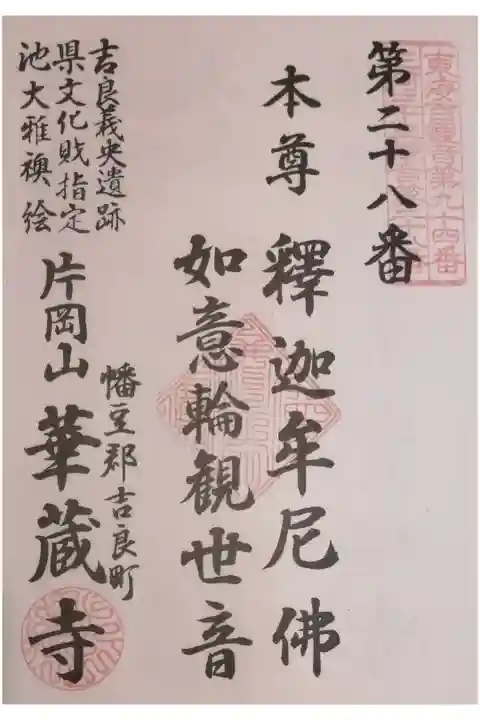 東
第九十四番
第二十八番
本尊 釋迦牟尼佛
如意輪観世音
幡豆郡吉良町
片岡山 華蔵寺
吉良義央遺跡
県文化財指定
池大雅襖絵